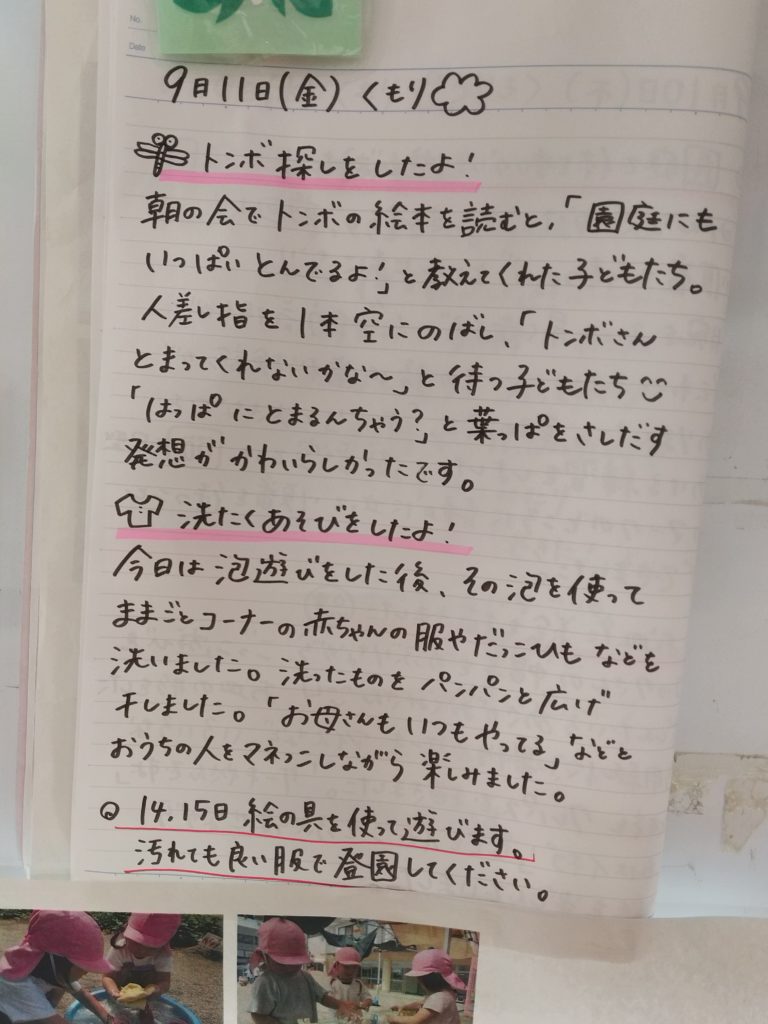 No.
Date
9月11日(金) くもり
トンボ探しをしたよ!
朝の会でトンボの絵本を読むと,「園庭にも
いっぱいとんでるよ!」と教えてくれた子どもたち。
人差し指を1本空にのばし、「トンボさん
とまってくれないかな〜」と待つ子どもたち
「はっぱにとまるんちゃう?」と葉っぱをさしだす
発想がかわいらしかったです。
洗たくあそびをしたよ!
今日は泡遊びをした後、その泡を使って
ままごとコーナーの赤ちゃんの服やだっこひもなどを
洗いました。洗ったものをパンパンと広げ
干しました。「お母さんもいつもやってる」などと
おうちの人をマネっこしながら楽しみました。
14.15日 絵の具を使って遊びます。
汚れても良い服で登園してください。